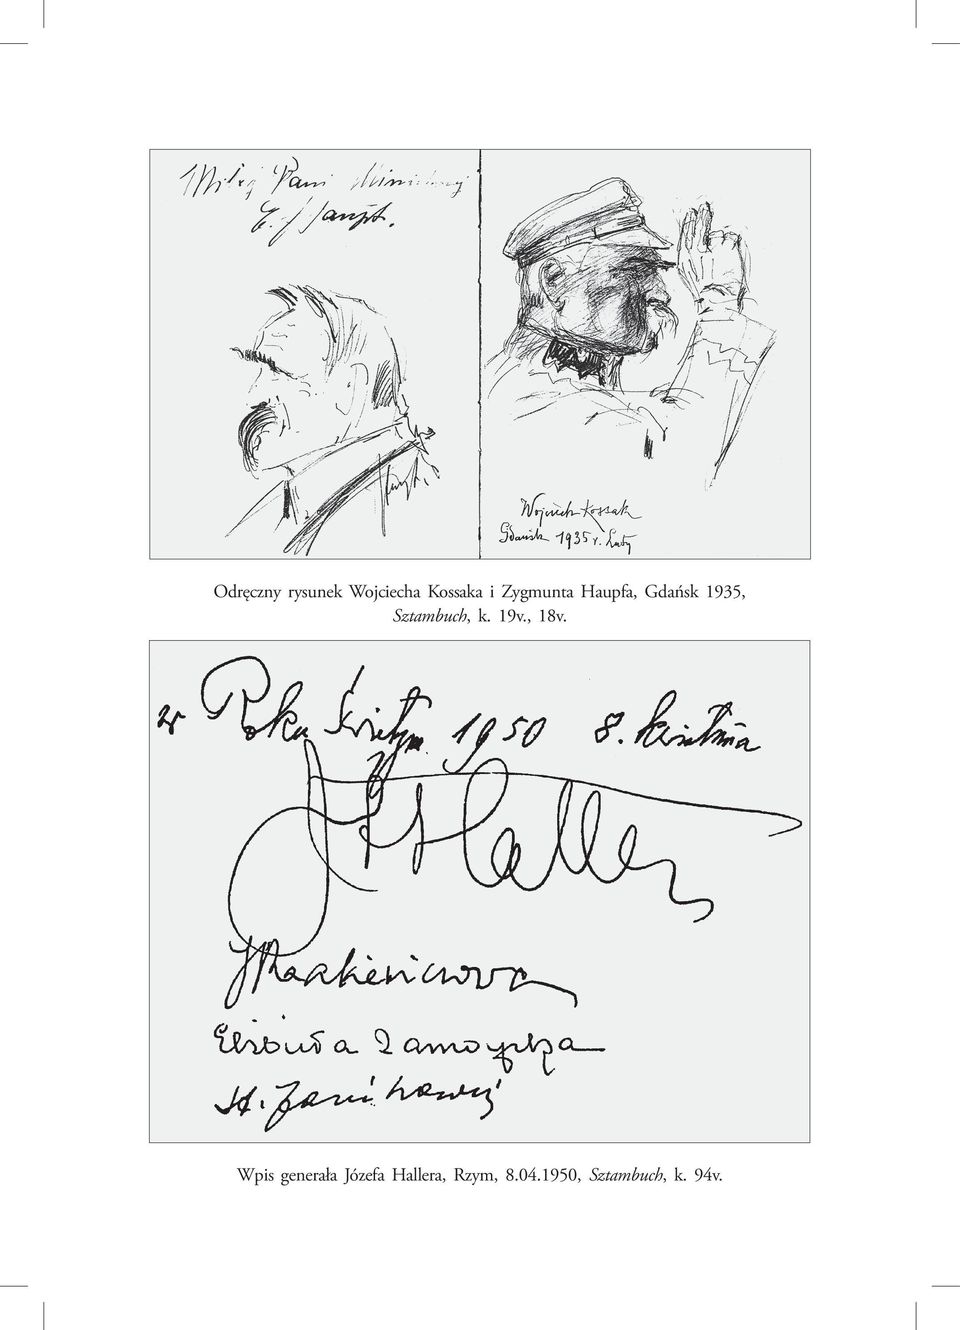 Miłej Pani Ministrowej
Haupt.
Wojciech Kossak
Gdańsk 1935 r. Luty
Odręczny rysunek Wojciecha Kossaka i Zygmunta Haupfa, Gdańsk 1935,
Sztambuch, k. 19v., 18v.
w Roku Świętym 1950 8. kwietnia
J Haller
Elżbieta Zamoyska
Wpis generała Józefa Hallera, Rzym, 8.04.1950, Sztambuch, k. 94v.